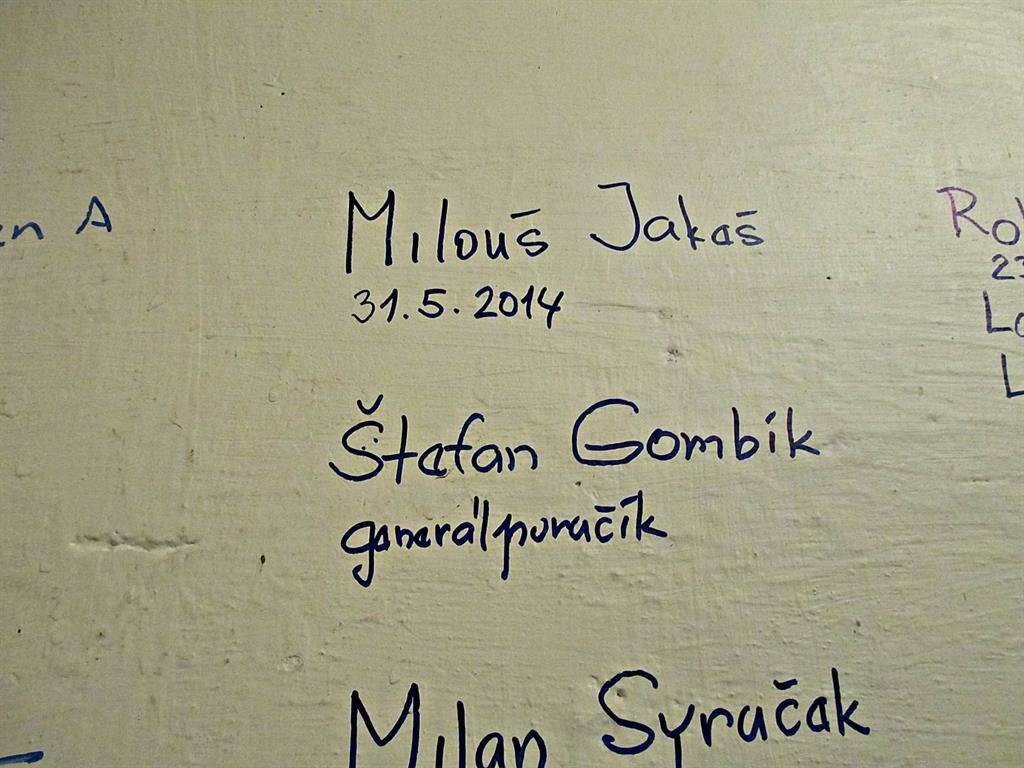 Milouš Jakeš
31.5.2014
Štefan Gombík
generálporučík
Milan Syručak
A
23